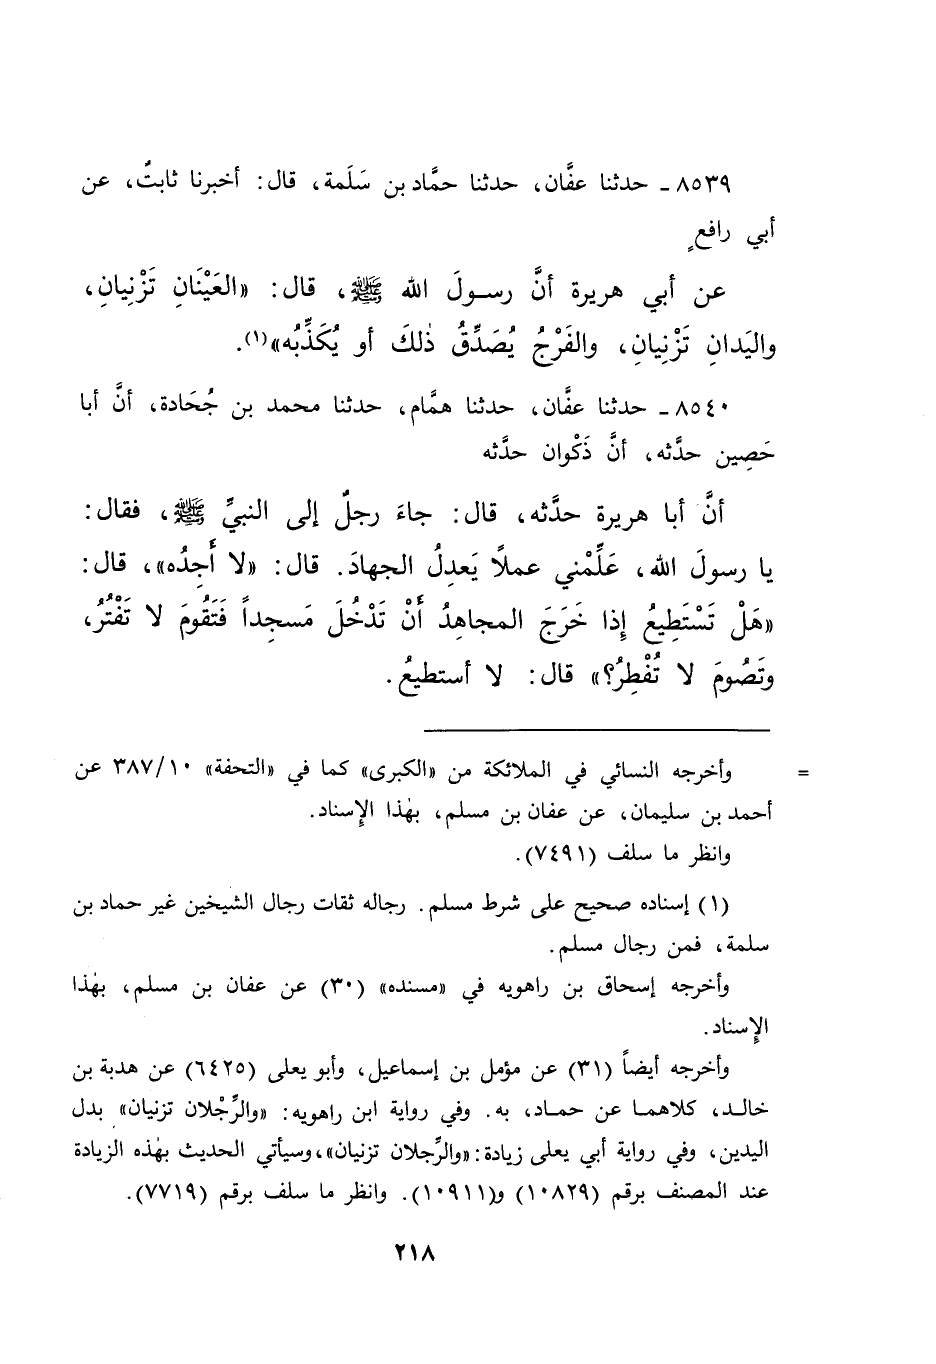 ٨٥٣٩ ـ حدثنا عفَّان، حدثنا حمَّاد بن سَلَمة، قال: أخبرنا ثابتٌ، عن
أبي رافعٍ
عن أبي هريرة أنَّ رسولَ الله ﷺ، قال: «العَيْنَانِ تَزْنِيانِ،
واليَدانِ تَزْنِيانِ، والفَرْجُ يُصَدِّقُ ذٰلكَ أو يُكَذِّبُه»(١).
٨٥٤٠ ـ حدثنا عفَّان، حدثنا همَّام، حدثنا محمد بن جُحَادة، أنَّ أبا
حَصِين حدَّثه، أنَّ ذَكْوان حدَّثه
أنَّ أبا هريرة حدَّثه، قال: جاءَ رجلٌ إلى النبيِّ ﷺ، فقال:
يا رسولَ الله، عَلِّمْني عملاً يَعدِلُ الجهادَ. قال: «لا أَجِدُه»، قال:
«هَلْ تَسْتَطِيعُ إِذا خَرَجَ المجاهِدُ أَنْ تَدْخُلَ مَسجِداً فَتَقُومَ لا تَفْتُرُ،
وتَصُومَ لا تُفْطِرُ؟» قال: لا أستطيعُ.
= وأخرجه النسائي في الملائكة من «الكبرى» كما في «التحفة» ٣٨٧/١٠ عن
أحمد بن سليمان، عن عفان بن مسلم، بهٰذا الإِسناد.
وانظر ما سلف (٧٤٩١).
(١) إسناده صحيح على شرط مسلم. رجاله ثقات رجال الشيخين غير حماد بن
سلمة، فمن رجال مسلم.
وأخرجه إسحاق بن راهويه في «مسنده» (٣٠) عن عفان بن مسلم، بهٰذا
الإِسناد.
وأخرجه أيضاً (٣١) عن مؤمل بن إسماعيل، وأبو يعلى (٦٤٢٥) عن هدبة بن
خالد، كلاهما عن حماد، به. وفي رواية ابن راهويه: «والرِّجْلان تزنيان» بدل
اليدين، وفي رواية أبي يعلى زيادة: «والرِّجلان تزنيان»، وسيأتي الحديث بهٰذه الزيادة
عند المصنف برقم (١٠٨٢٩) و(١٠٩١١). وانظر ما سلف برقم (٧٧١٩).
٢١٨